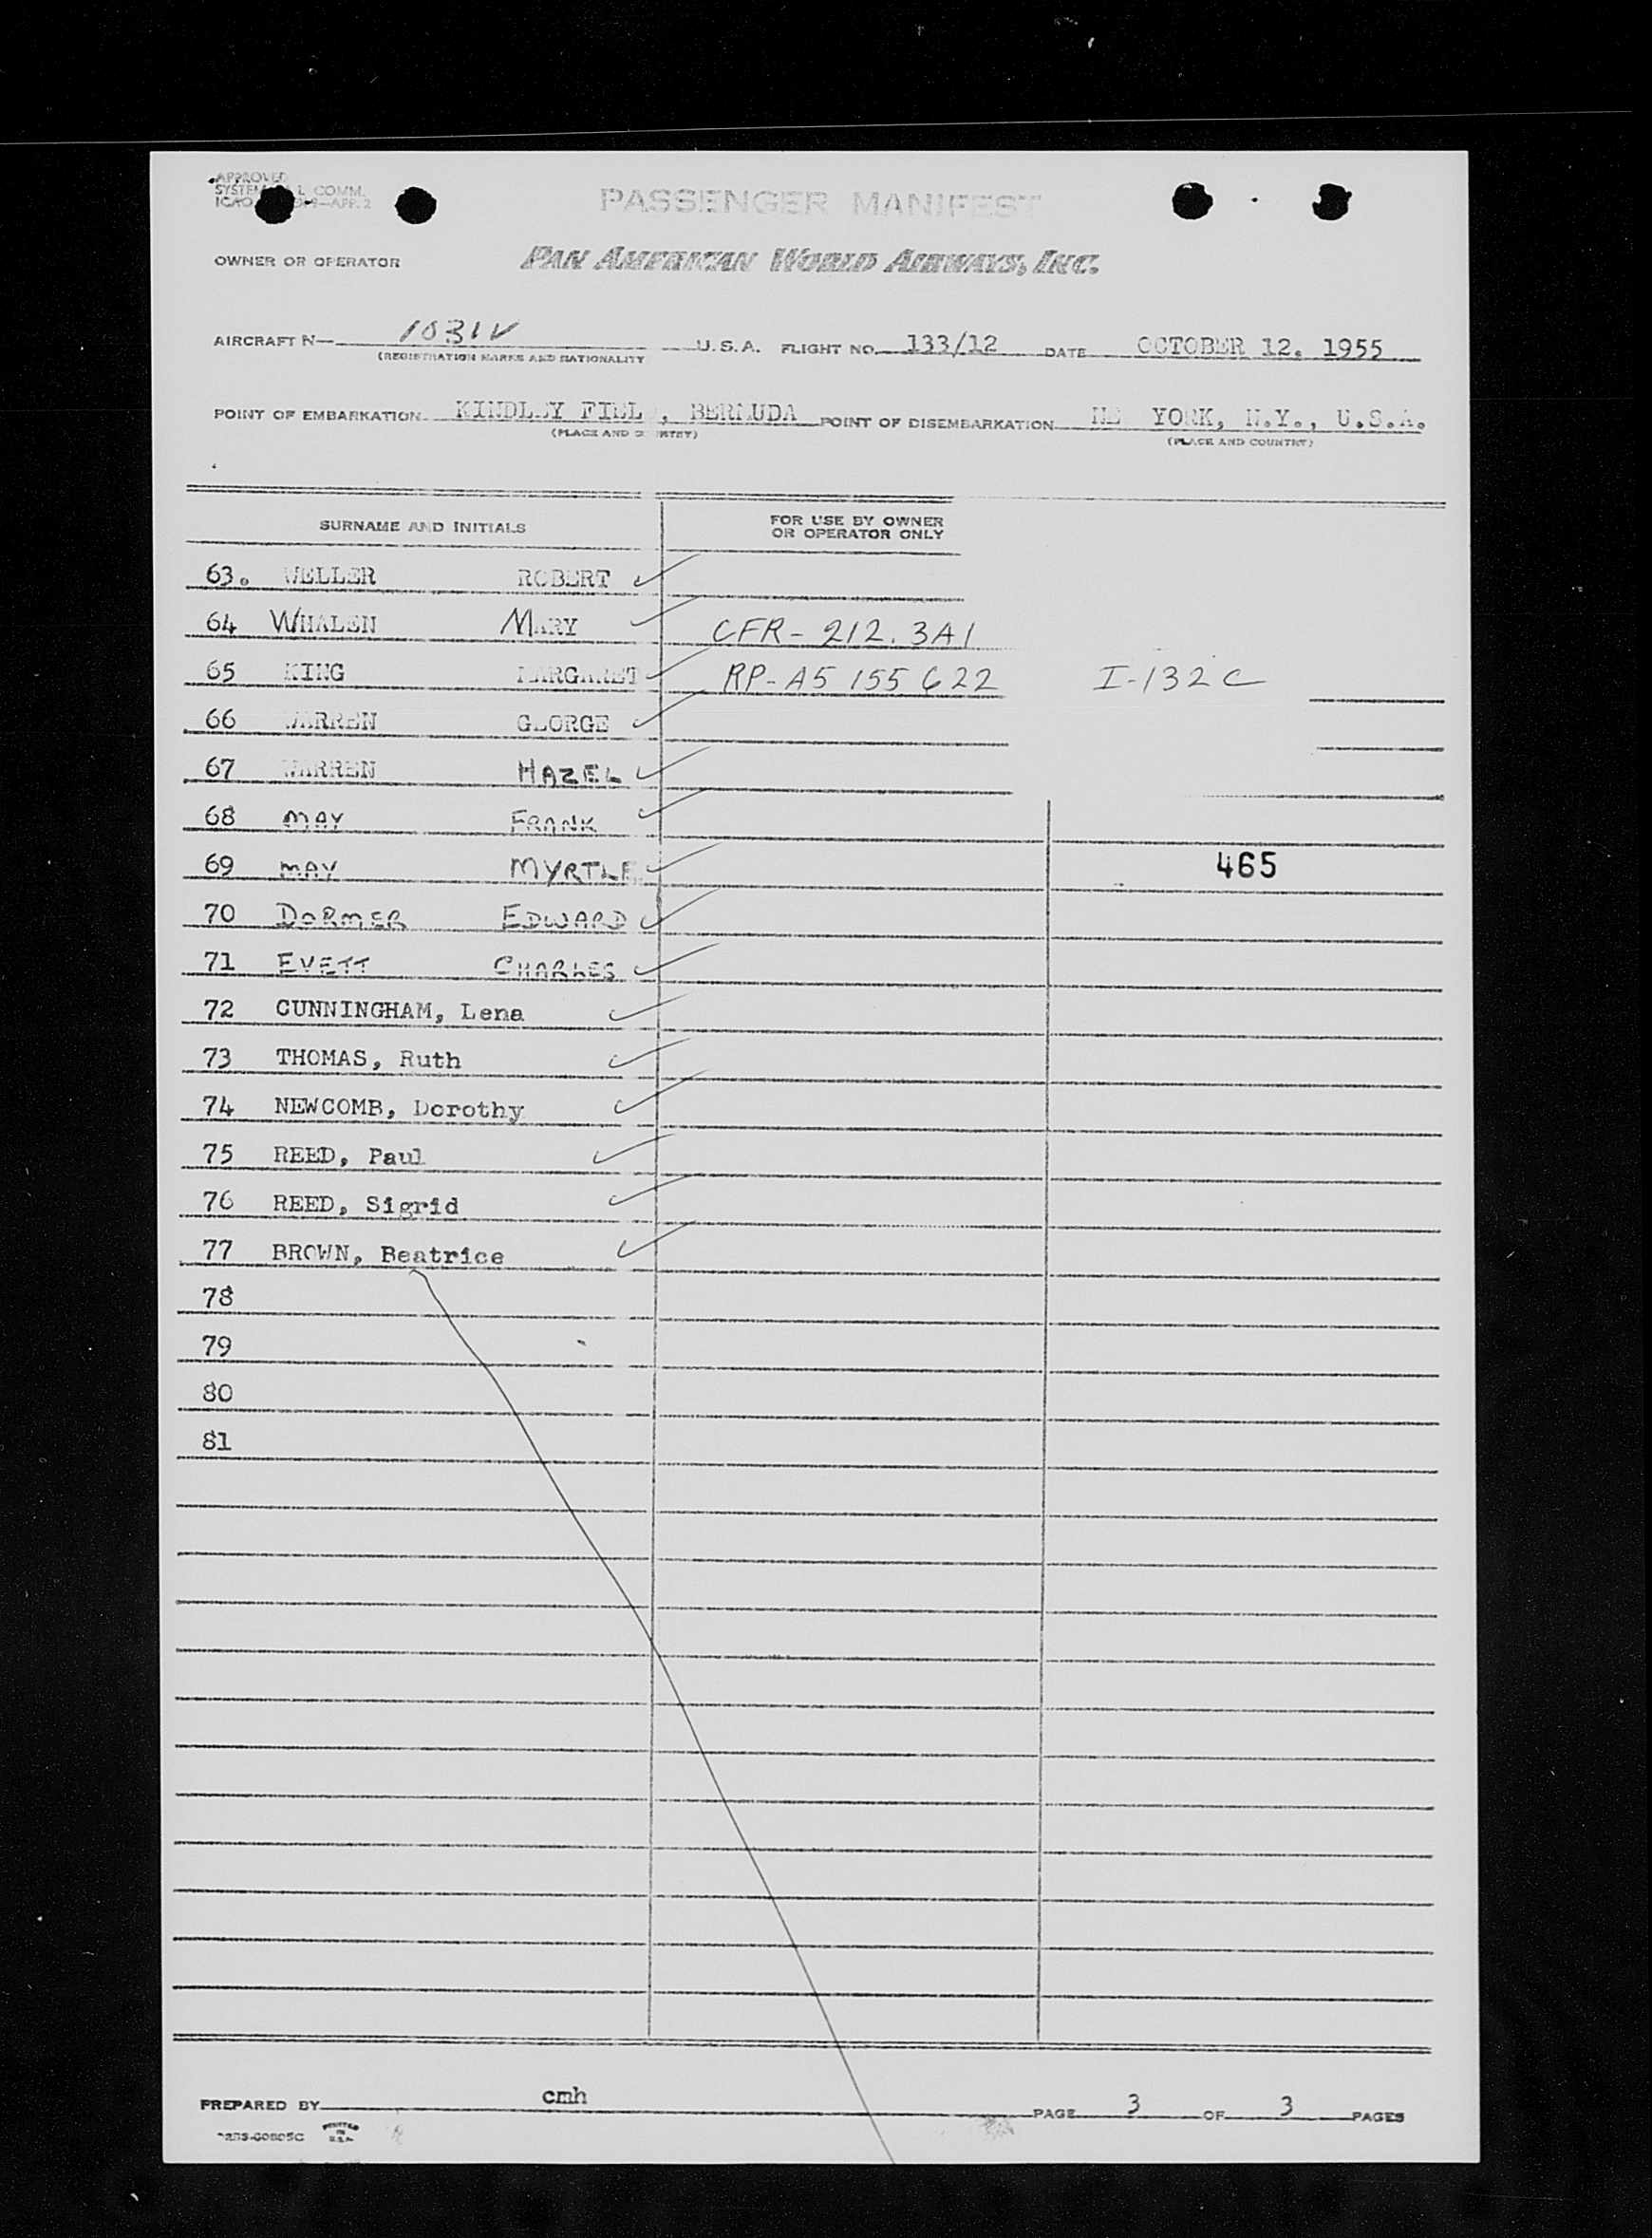 APPROVED
SYSTEM L COMM.
ICAO —APP. 2
PASSENGER MANIFEST
OWNER OR OPERATOR PAN AMERICAN WORLD AIRWAYS, INC.
AIRCRAFT N— 1031V U.S.A. FLIGHT NO. 133/12 DATE OCTOBER 12. 1955
(REGISTRATION MARKS AND NATIONALITY
POINT OF EMBARKATION KINDLEY FIEL , BERMUDA POINT OF DISEMBARKATION NE YORK, N.Y., U.S.A.
(PLACE AND COUNTRY) (PLACE AND COUNTRY)
SURNAME AND INITIALS FOR USE BY OWNER
OR OPERATOR ONLY
63. WELLER ROBERT
64 WHALEN MARY CFR- 212.3A1
65 KING MARGARET RP-A5 155 622 I-132C
66 WARREN GEORGE
67 WARREN HAZEL
68 MAY FRANK
69 MAY MYRTLE 465
70 DORMER EDWARD
71 EVETT CHARLES
72 CUNNINGHAM, Lena
73 THOMAS, Ruth
74 NEWCOMB, Dorothy
75 REED, Paul
76 REED, Sigrid
77 BROWN, Beatrice
78
79
80
81
PREPARED BY cmh PAGE 3 OF 3 PAGES
PRINTED
IN
U.S.A.